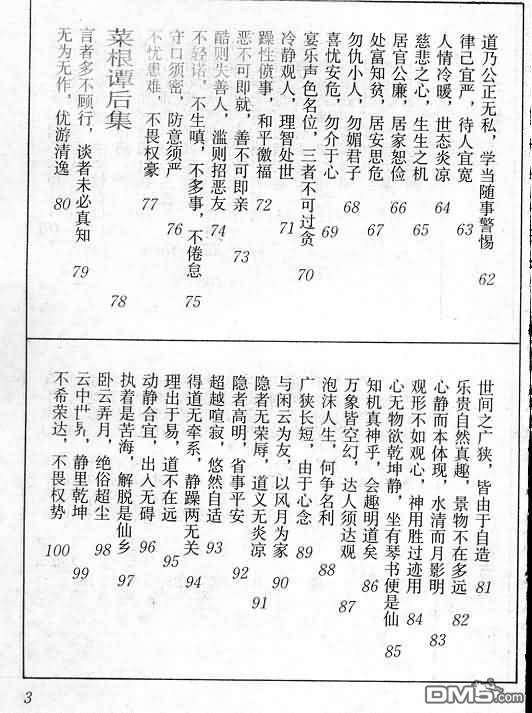 道乃公正无私，学当随事警惕 62
律己宜严，待人宜宽 63
人情冷暖，世态炎凉 64
慈悲之心，生生之机 65
居官公廉，居家恕俭 66
处富知贫，居安思危 67
勿仇小人，勿媚君子 68
喜忧安危，勿介于心 69
宴乐声色名位，三者不可过贪 70
冷静观人，理智处世 71
躁性偾事，和平徼福 72
恶不可即就，善不可即亲 73
酷则失善人，滥则招恶友 74
不轻诺，不生嗔，不多事，不倦怠 75
守口须密，防意须严 76
不忧患难，不畏权豪 77
菜根谭后集 78
言者多不顾行，谈者未必真知 79
无为无作，优游清逸 80
世间之广狭，皆由于自造 81
乐贵自然真趣，景物不在多远 82
心静而本体现，水清而月影明 83
观形不如观心，神用胜过迹用 84
心无物欲乾坤静，坐有琴书便是仙 85
知机真神乎，会趣明道矣 86
万象皆空幻，达人须达观 87
泡沫人生，何争名利 88
广狭长短，由于心念 89
与闲云为友，以风月为家 90
隐者无荣辱，道义无炎凉 91
隐者高明，省事平安 92
超越喧寂，悠然自适 93
得道无牵系，静躁两无关 94
理出于易，道不在远 95
动静合宜，出入无碍 96
执着是苦海，解脱是仙乡 97
卧云弄月，绝俗超尘 98
云中世界，静里乾坤 99
不希荣达，不畏权势 100
3
DM5.com